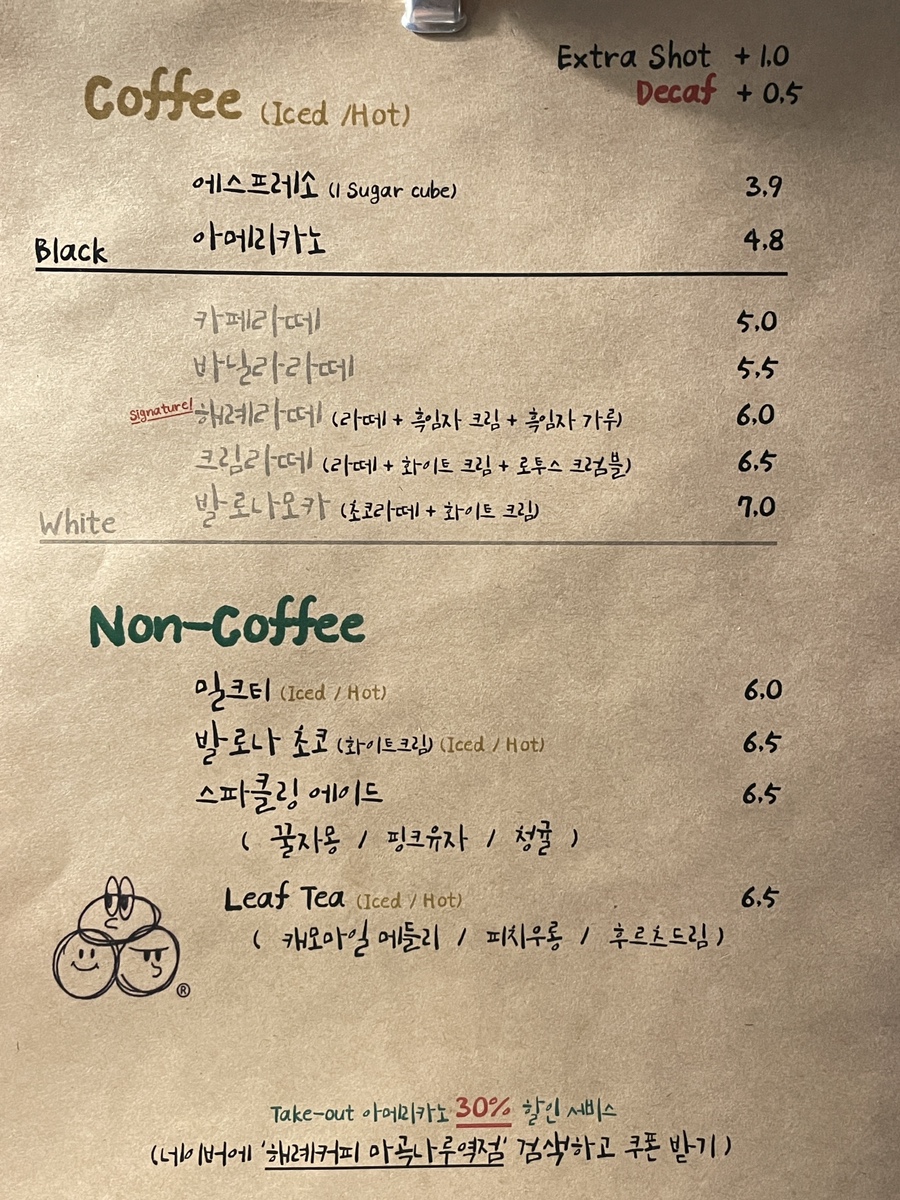 Extra Shot + 1.0
Decaf + 0.5
Coffee (Iced /Hot)
에스프레소 (1 Sugar cube) 3.9
아메리카노 4.8
Black
카페라떼 5.0
바닐라라떼 5.5
Signature! 해례라떼 (라떼 + 흑임자 크림 + 흑임자 가루) 6.0
크림라떼 (라떼 + 화이트 크림 + 로투스 크럼블) 6.5
발로나모카 (초코라떼 + 화이트 크림) 7.0
White
Non-Coffee
밀크티 (Iced / Hot) 6.0
발로나 초코 (화이트크림) (Iced / Hot) 6.5
스파클링 에이드 6.5
( 꿀자몽 / 핑크유자 / 청귤 )
Leaf Tea (Iced / Hot) 6.5
( 캐모마일 메들리 / 피치우롱 / 후르츠드림 )
®
Take-out 아메리카노 30% 할인 서비스
(네이버에 '해례커피 마곡나루역점' 검색하고 쿠폰 받기)